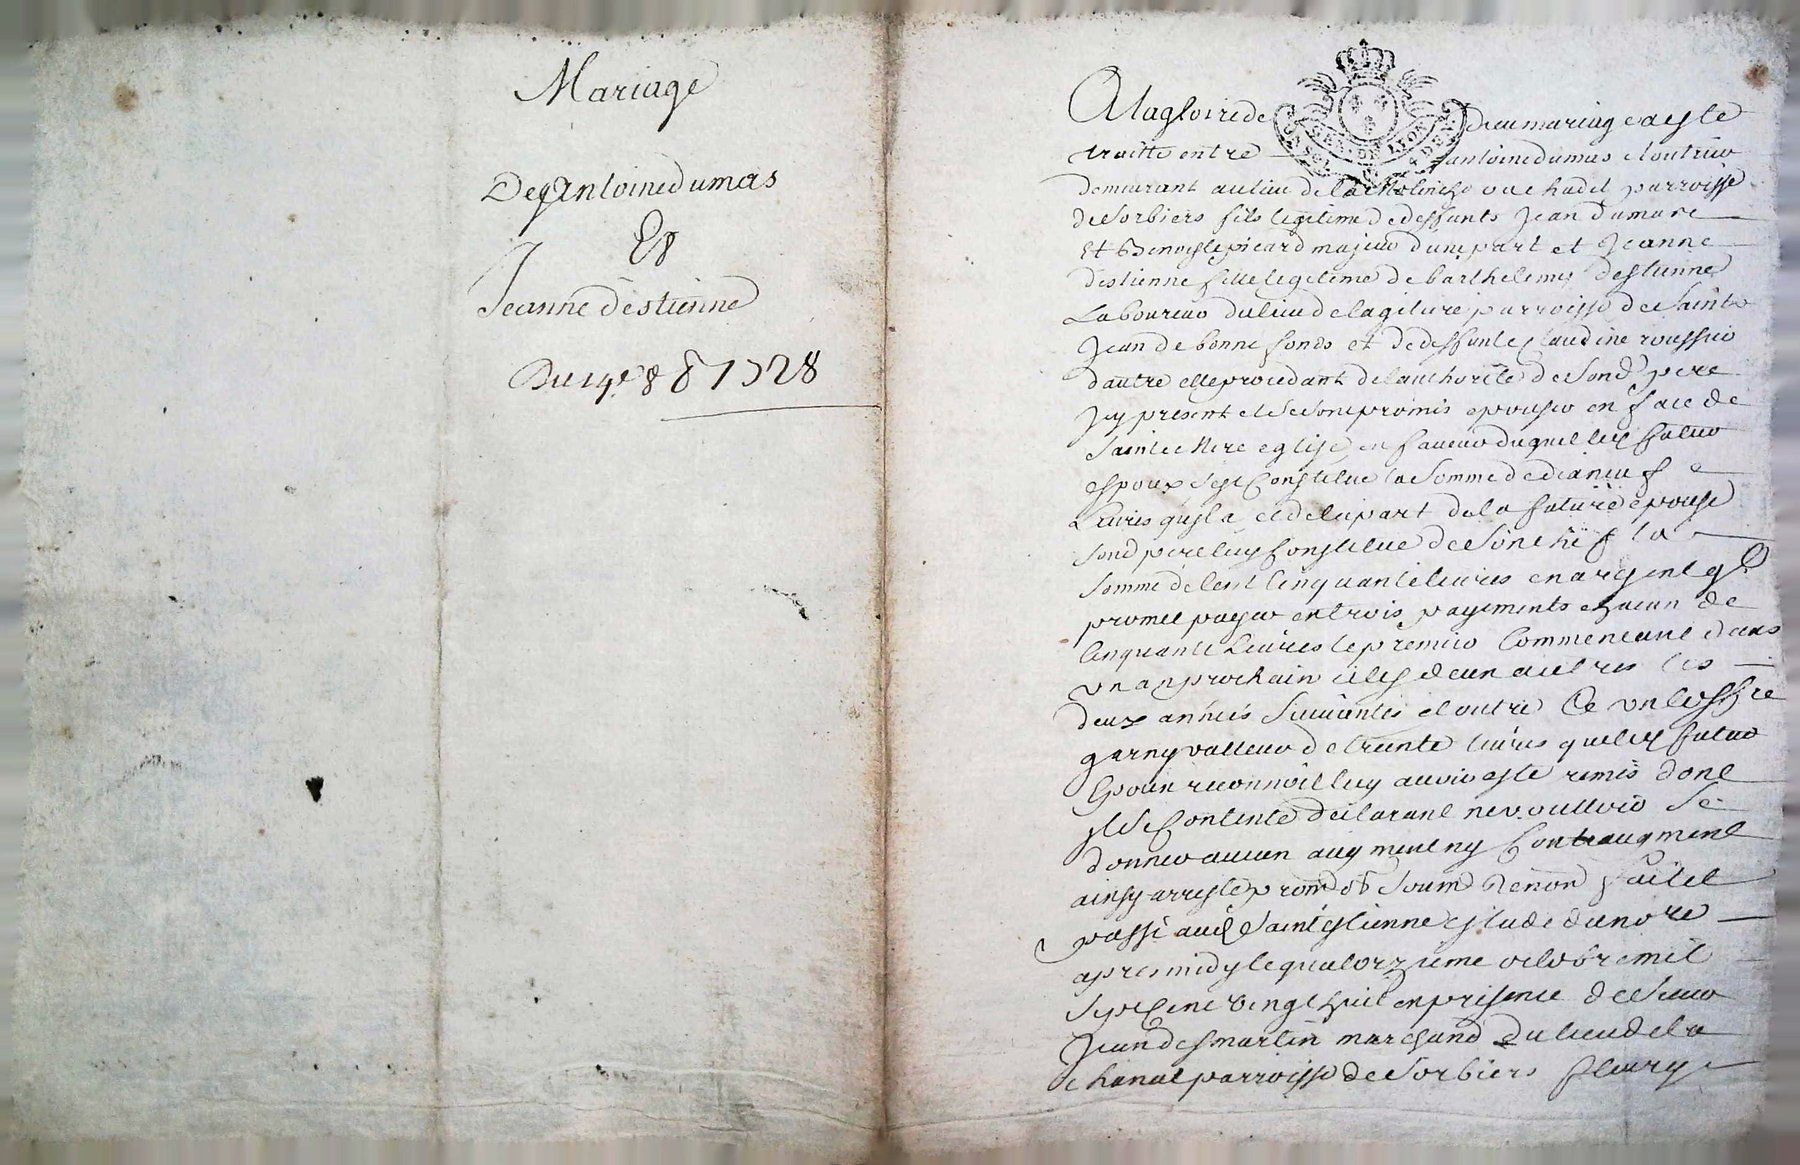 Mariage
De Antoine dumas
Et
Jeanne destienne
Du 14e 8 1728
A la gloire de Dieu mariage a este
traitte entre antoine dumas cloutrier
demeurant au lieu de parroisse
de Sorbiers fils legitime de deffunts Jean dumas
Et Benoiste picard majeur dune part et Jeanne
destienne fille legitime de barthelemy destienne
Laboureur du lieu de parroisse de Saint
Jean de bonnefonds et de deffunte Claudine roussier
dautre elle procedant de lauthorité de Sond pere
Icy present et se sont promis epouser en face de
Sainte Mere eglise en faveur duquel led futur
espoux sest Constitue la Somme de dix neuf
Livres qu'il a et de la part de la future epouse
sond pere luy Constitue de Son chef la
Somme de Cent Cinquante livres en argent ql
promet payer en trois payements chacun de
Cinquante Livres le premier Commencant dans
un an prochain et les deux autres les
deux années Suivantes et outre Ce un Coffre
garny valleur de trente livres que led futur
Epoux reconnoit luy avoir este remis dont
il se Contente declarant ne vouloir Se
donner aucun augment ny Contraugment
ainsy arresté prom ob Soum Renon fait et
passé aud Saint estienne estude du nore
apres midy le quatorzieme octobre mil
Sept Cent vingt huit en presence de Sieur
Jean desmartin marchand du lieu de la
chanal parroisse de Sorbiers fleury
GEN. DE LYON